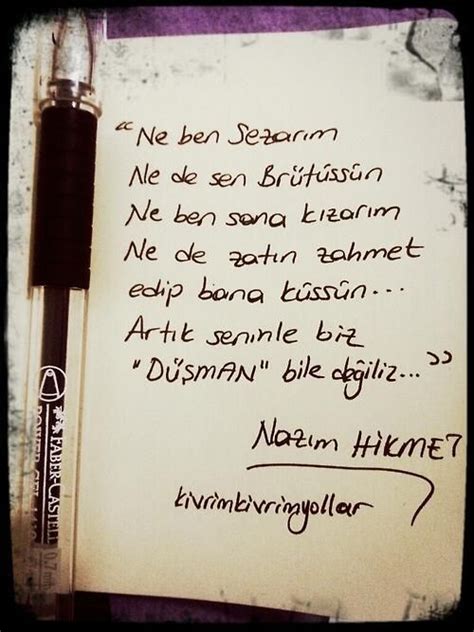 “Ne ben Sezarım
Ne de sen Brütüssün
Ne ben sana kızarım
Ne de zatın zahmet
edip bana küssün...
Artık seninle biz
"DÜŞMAN" bile değiliz...”
Nazım HİKMET
kivrimkivrimyollar
FABER-CASTELL
0.7 mm